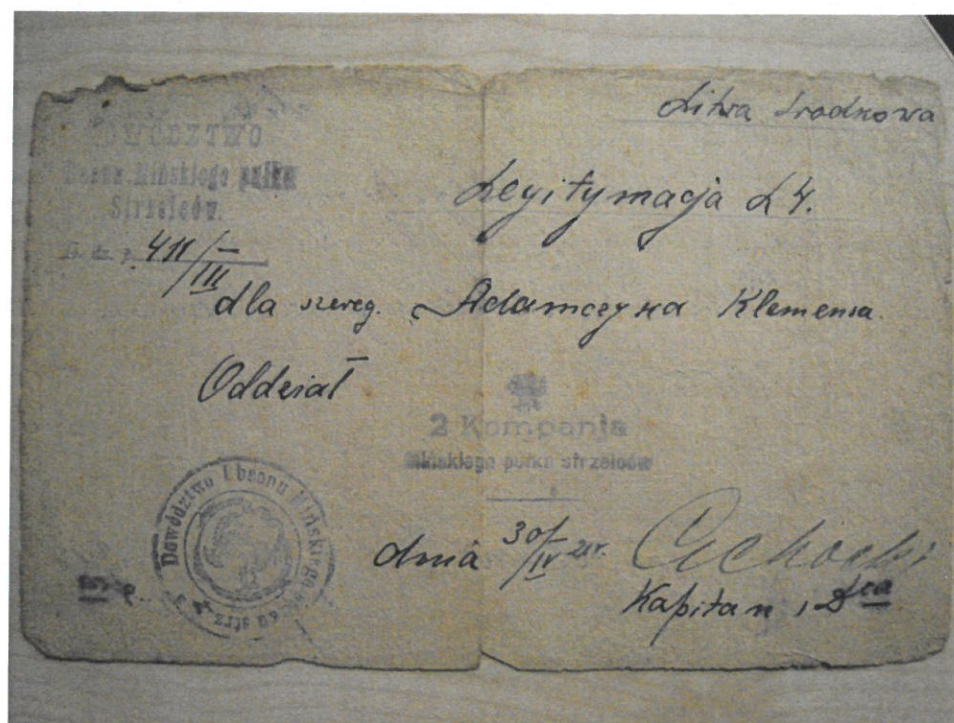 DOWÓDZTWO
I baonu Mińskiego pułku
Strzelców.
L. dz. p. 411/III
Litwa Środkowa
Legitymacja L 4.
dla szereg. Adamczyka Klemensa
Oddział
2 Kompania
Mińskiego pułku strzelców
Dowództwo I baonu Mińskiego strz.
dnia 30/IV 21r.
Kapitan i Dca
m. p.